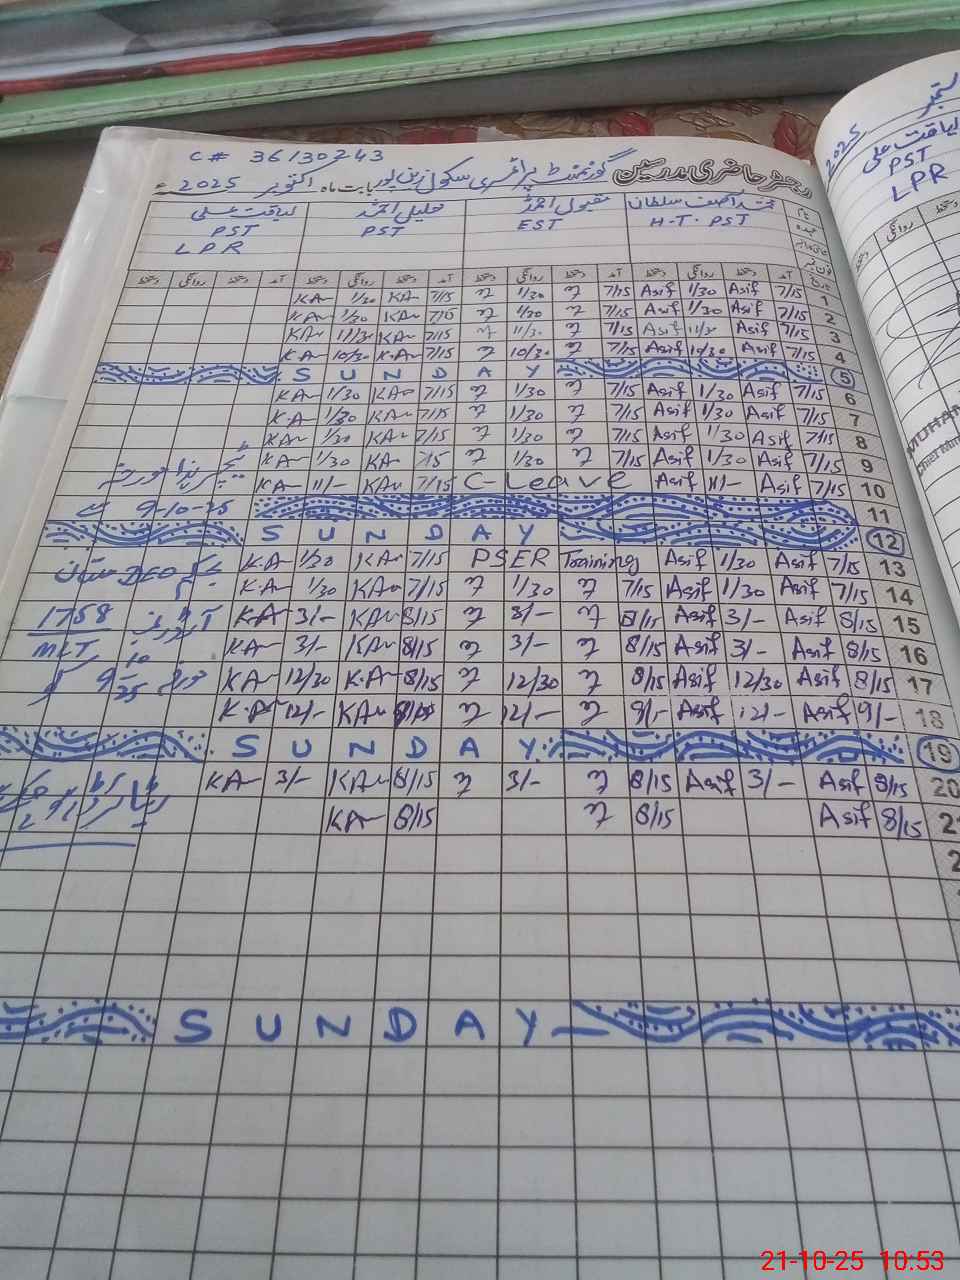 C# 36130243
رجسٹر حاضری مدرسین گورنمنٹ پرائمری سکول زین پور بابت ماہ اکتوبر 2025ء
محمد آصف سلطان مقبول احمد خلیل احمد لیاقت علی
H.T. PST EST PST PST
LPR
آمد دستخط روانگی دستخط آمد دستخط روانگی دستخط آمد دستخط روانگی دستخط آمد دستخط روانگی دستخط
KA 1/30 KA 7/15 1/30 7/15 Asif 1/30 Asif 7/15 1
KA 1/30 KA 7/15 1/30 7/15 Asif 1/30 Asif 7/15 2
KA 11/30 KA 7/15 11/30 7/15 Asif 11/30 Asif 7/15 3
KA 10/30 KA 7/15 10/30 7/15 Asif 10/30 Asif 7/15 4
SUNDAY 5
KA 1/30 KA 7/15 1/30 7/15 Asif 1/30 Asif 7/15 6
KA 1/30 KA 7/15 1/30 7/15 Asif 1/30 Asif 7/15 7
KA 1/30 KA 7/15 1/30 7/15 Asif 1/30 Asif 7/15 8
KA 1/30 KA 7/15 1/30 7/15 Asif 1/30 Asif 7/15 9
KA 11/- KA 7/15 C-Leave Asif 11/- Asif 7/15 10
9-10-25 11
SUNDAY 12
KA 1/30 KA 7/15 PSER Training Asif 1/30 Asif 7/15 13
KA 1/30 KA 7/15 1/30 7/15 Asif 1/30 Asif 7/15 14
1758 KA 3/- KA 8/15 3/- 8/15 Asif 3/- Asif 8/15 15
KA 3/- KA 8/15 3/- 8/15 Asif 3/- Asif 8/15 16
KA 12/30 KA 8/15 12/30 8/15 Asif 12/30 Asif 8/15 17
KA 12/- KA 12/- 9/- Asif 12/- Asif 9/- 18
SUNDAY 19
KA 3/- KA 8/15 3/- 8/15 Asif 3/- Asif 8/15 20
KA 8/15 8/15 Asif 8/15 21
SUNDAY
ستمبر 2025
لیاقت علی
PST
LPR
روانگی دستخط
21-10-25 10:53